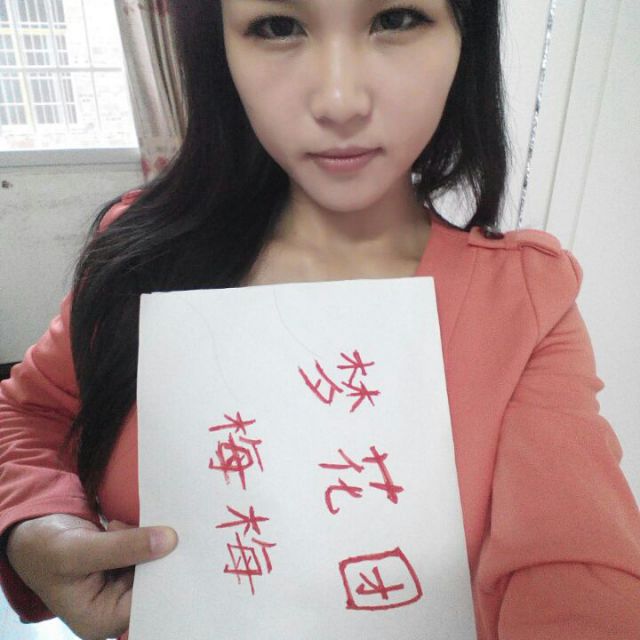 梦花团
梅梅